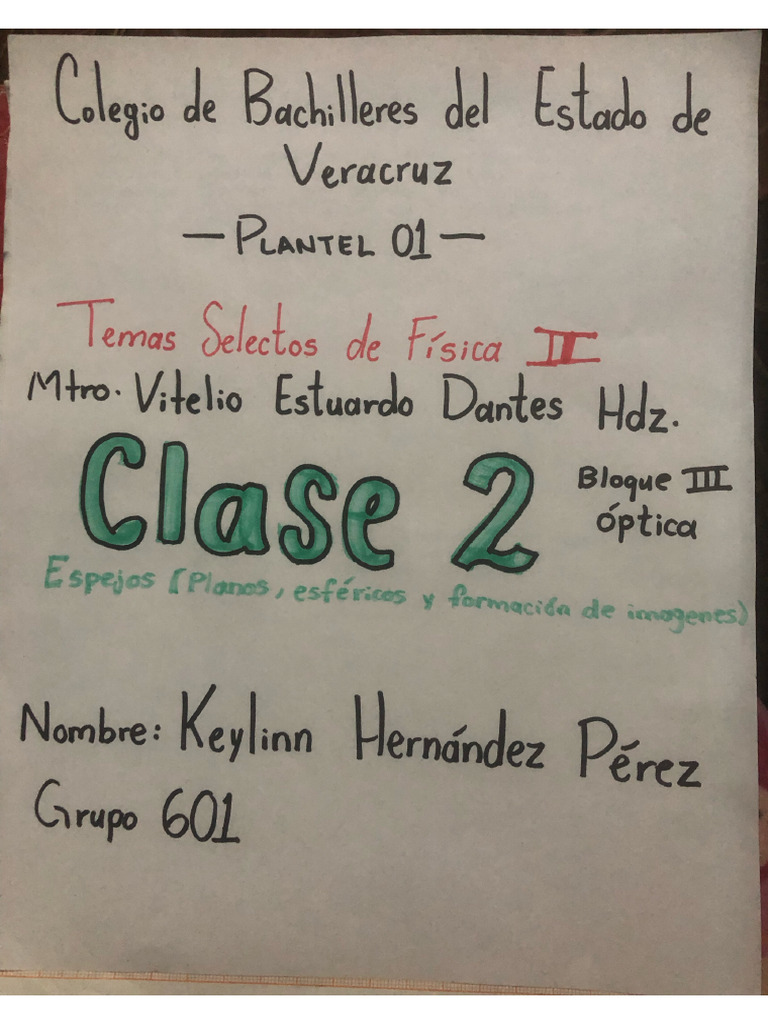 Colegio de Bachilleres del Estado de
Veracruz
— PLANTEL 01 —
Temas Selectos de Física II
Mtro. Vitelio Estuardo Dantes Hdz.
Clase 2
Bloque III
óptica
Espejos (Planos, esféricos y formación de imagenes)
Nombre: Keylinn Hernández Pérez
Grupo 601